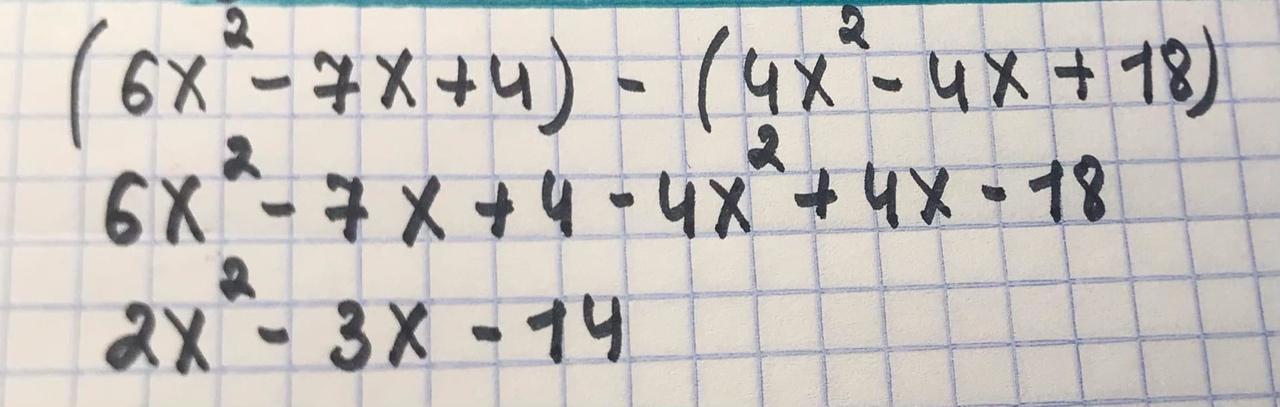 (6x² - 7x + 4) - (4x² - 4x + 18)
6x² - 7x + 4 - 4x² + 4x - 18
2x² - 3x - 14